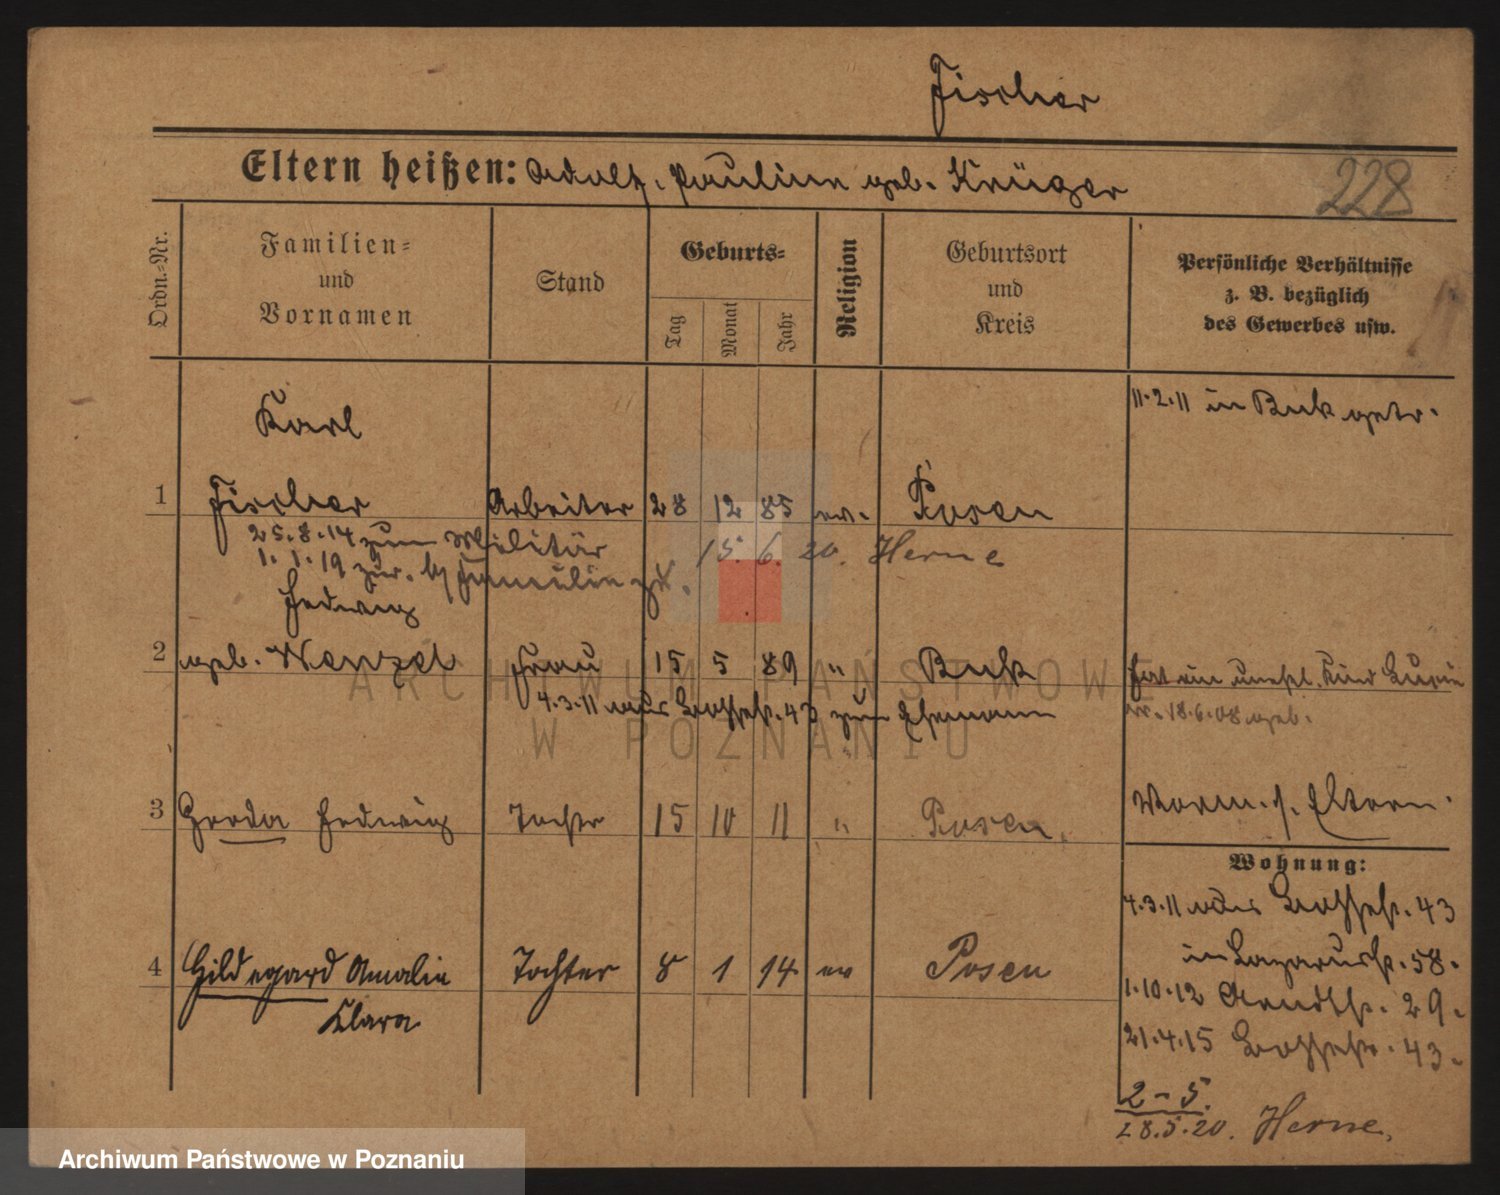 Fischer
Eltern heißen: Adolf, Pauline geb. Krüger
228
Ordn.-Nr.
Familien-
und
Vornamen
Stand
Geburts-
Tag
Monat
Jahr
Religion
Geburtsort
und
Kreis
Persönliche Verhältnisse
z. B. bezüglich
des Gewerbes usw.
Karl
11.2.11 in Buk getr.
1 Fischer Arbeiter 28 12 85 ev. Posen
25.8.14 zum Militär
15. 6. 20. Herne
1.1.19 zur. Familie
Hedwig
2 geb. Wenzel Frau 15 5 89 " Buk
Hat ein unehl. Kind
4.3.11 aus 43 zum Ehemann
18.6.08 geb.
3 Gerda Hedwig Tochter 15 10 11 " Posen
Vorm. s. Eltern.
Wohnung:
4.3.11 aus 43
4 Hildegard Amalie Tochter 8 1 14 ev Posen
Klara
in Lazarusstr. 58.
1.10.12 Arndtstr. 29.
21.4.15 43.
2-5.
28.5.20. Herne.
ARCHIWUM PAŃSTWOWE
W POZNANIU
Archiwum Państwowe w Poznaniu